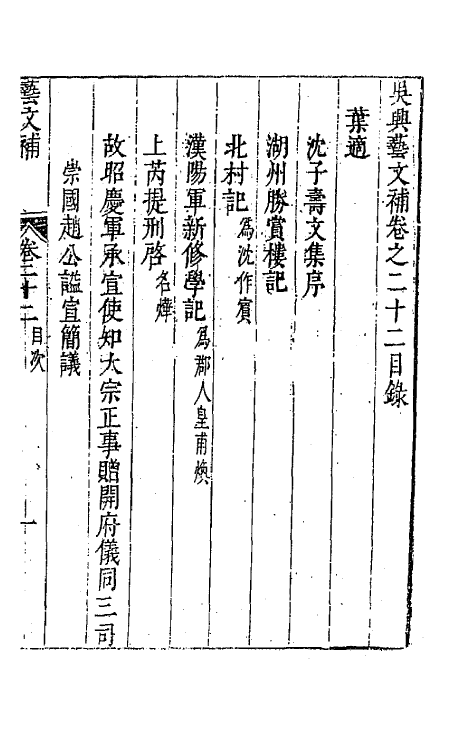 吳興藝文補卷之二十二目錄
葉適
沈子壽文集序
湖州勝賞樓記
北村記為沈作賓
漢陽軍新修學記為郡人皇甫煥
上芮提刑啓名燁
故昭慶軍承宣使知大宗正事贈開府儀同三司
崇國趙公謚宣簡議
藝文補 卷二十二目次 一